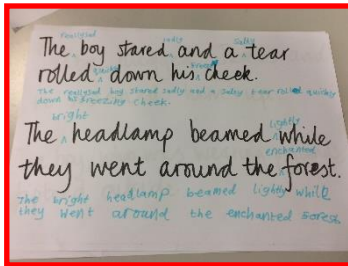 sadly salty
The boy stared and a tear
quickly
rolled down his cheek.
The boy stared sadly and a salty tear rolled quickly
down his freezing cheek.
bright lightly
The headlamp beamed while
enchanted
they went around the forest.
The bright headlamp beamed lightly while
they went around the enchanted forest